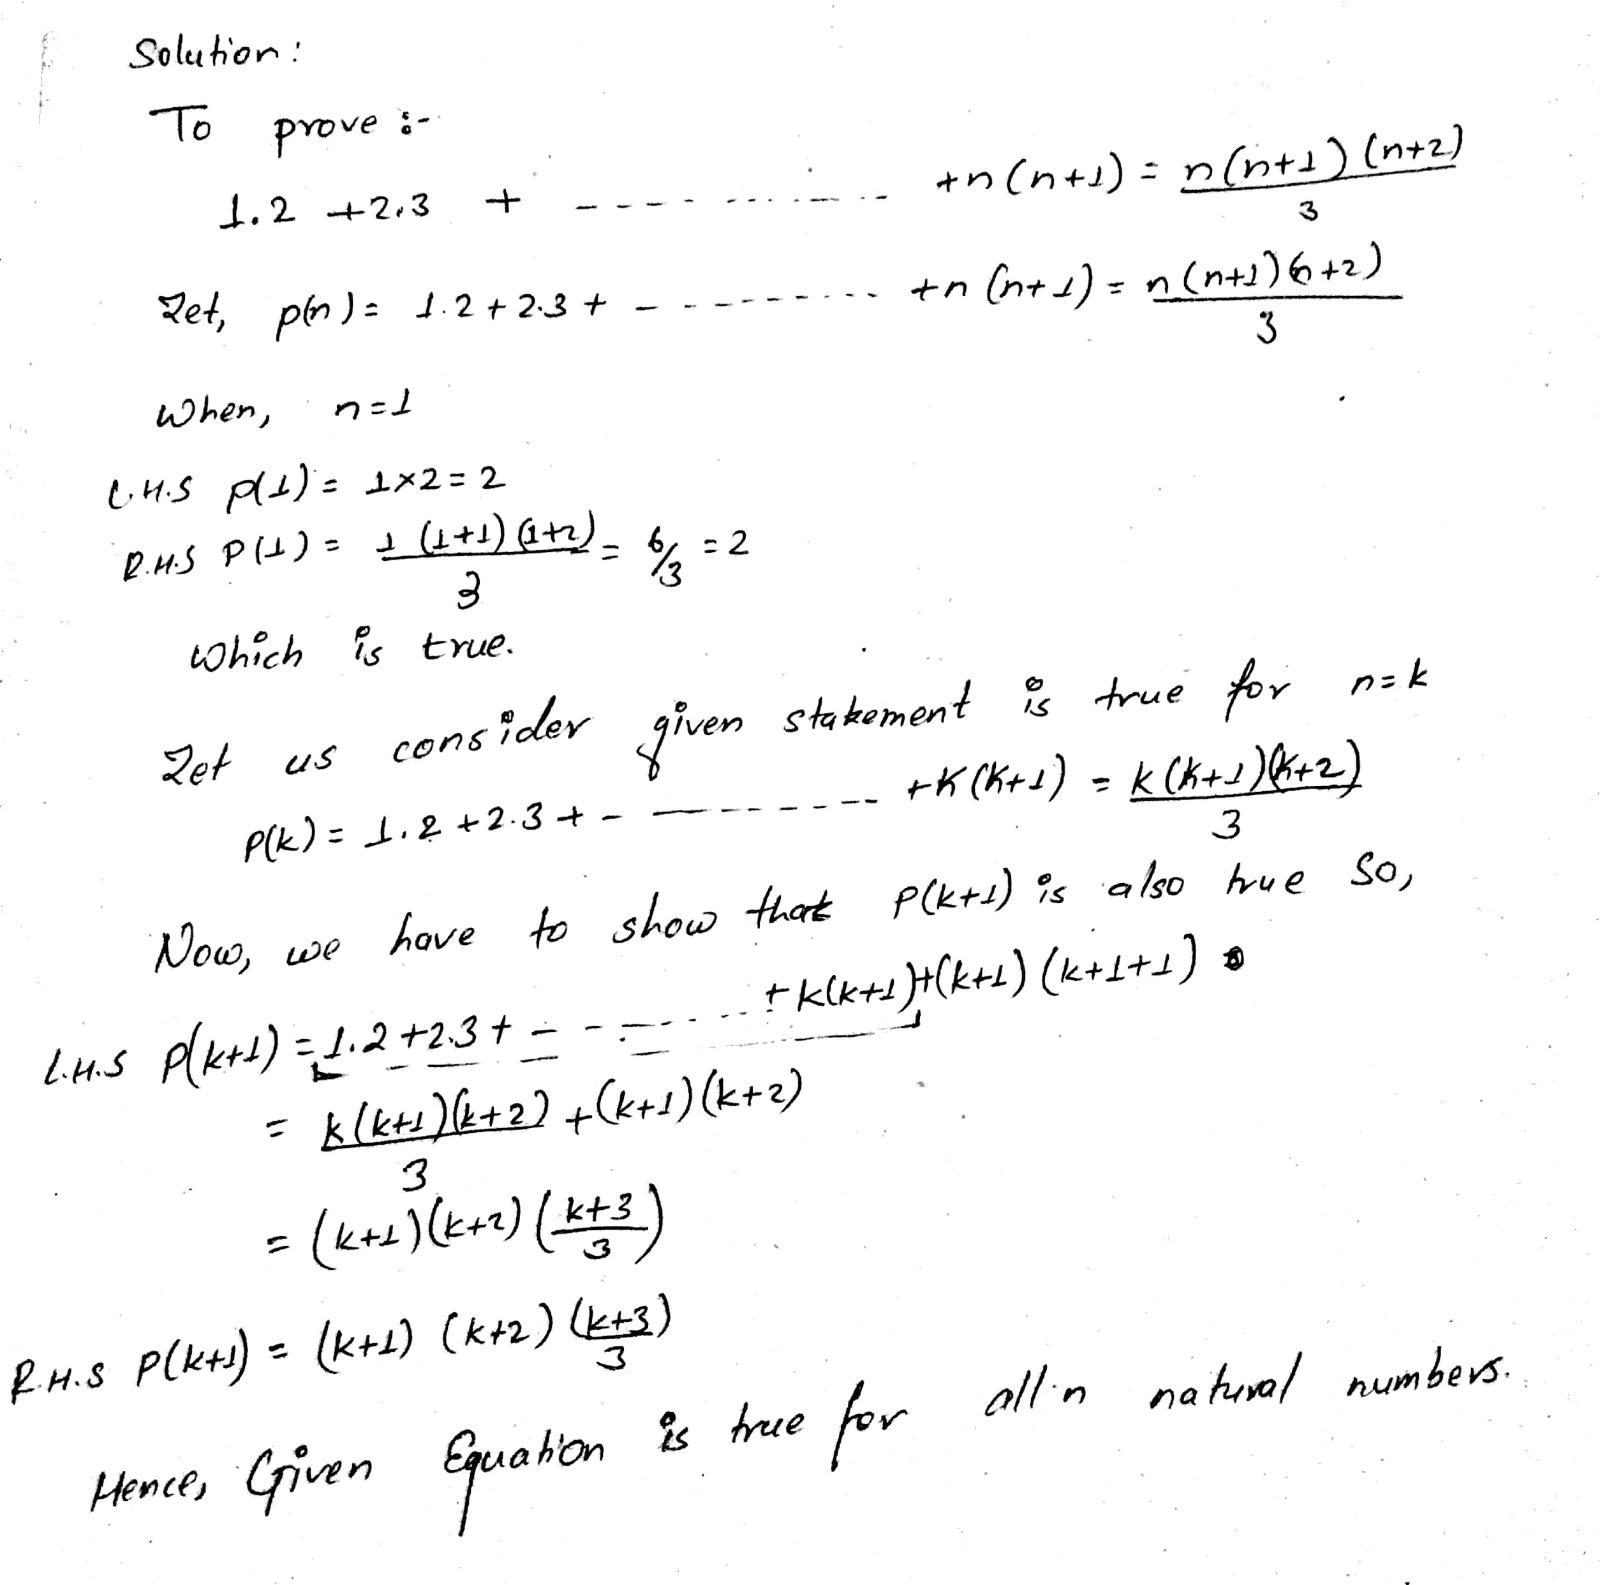 Solution:
To prove :-
1.2 +2.3 + ------------ +n(n+1) = n(n+1)(n+2)/3
Let, p(n) = 1.2 + 2.3 + ------------ +n(n+1) = n(n+1)(n+2)/3
When, n=1
L.H.S p(1) = 1×2 = 2
R.H.S P(1) = 1(1+1)(1+2)/3 = 6/3 = 2
which is true.
Let us consider given statement is true for n=k
P(k) = 1.2 +2.3 + ------------ +k(k+1) = k(k+1)(k+2)/3
Now, we have to show that P(k+1) is also true so,
L.H.S P(k+1) = 1.2 +2.3 + ------------ + k(k+1)+(k+1)(k+1+1)
= k(k+1)(k+2)/3 +(k+1)(k+2)
= (k+1)(k+2)((k+3)/3)
R.H.S P(k+1) = (k+1) (k+2) (k+3)/3
Hence, Given Equation is true for all n natural numbers.